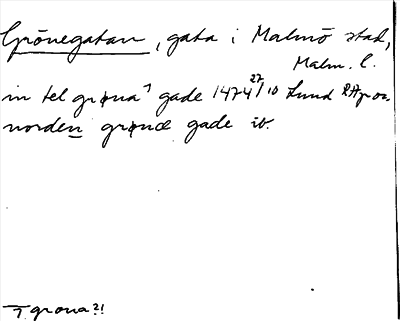 Grönegatan, gata i Malmö stad,
Malm. l.
in tel grøna⁊ gade 1474 27/10 Lund
norden grønæ gade ib.
⁊ grona?!